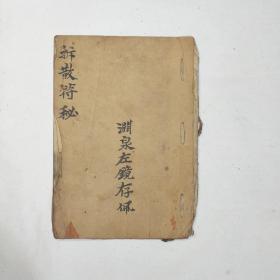 淵泉左鏡存佩
觧散符秘